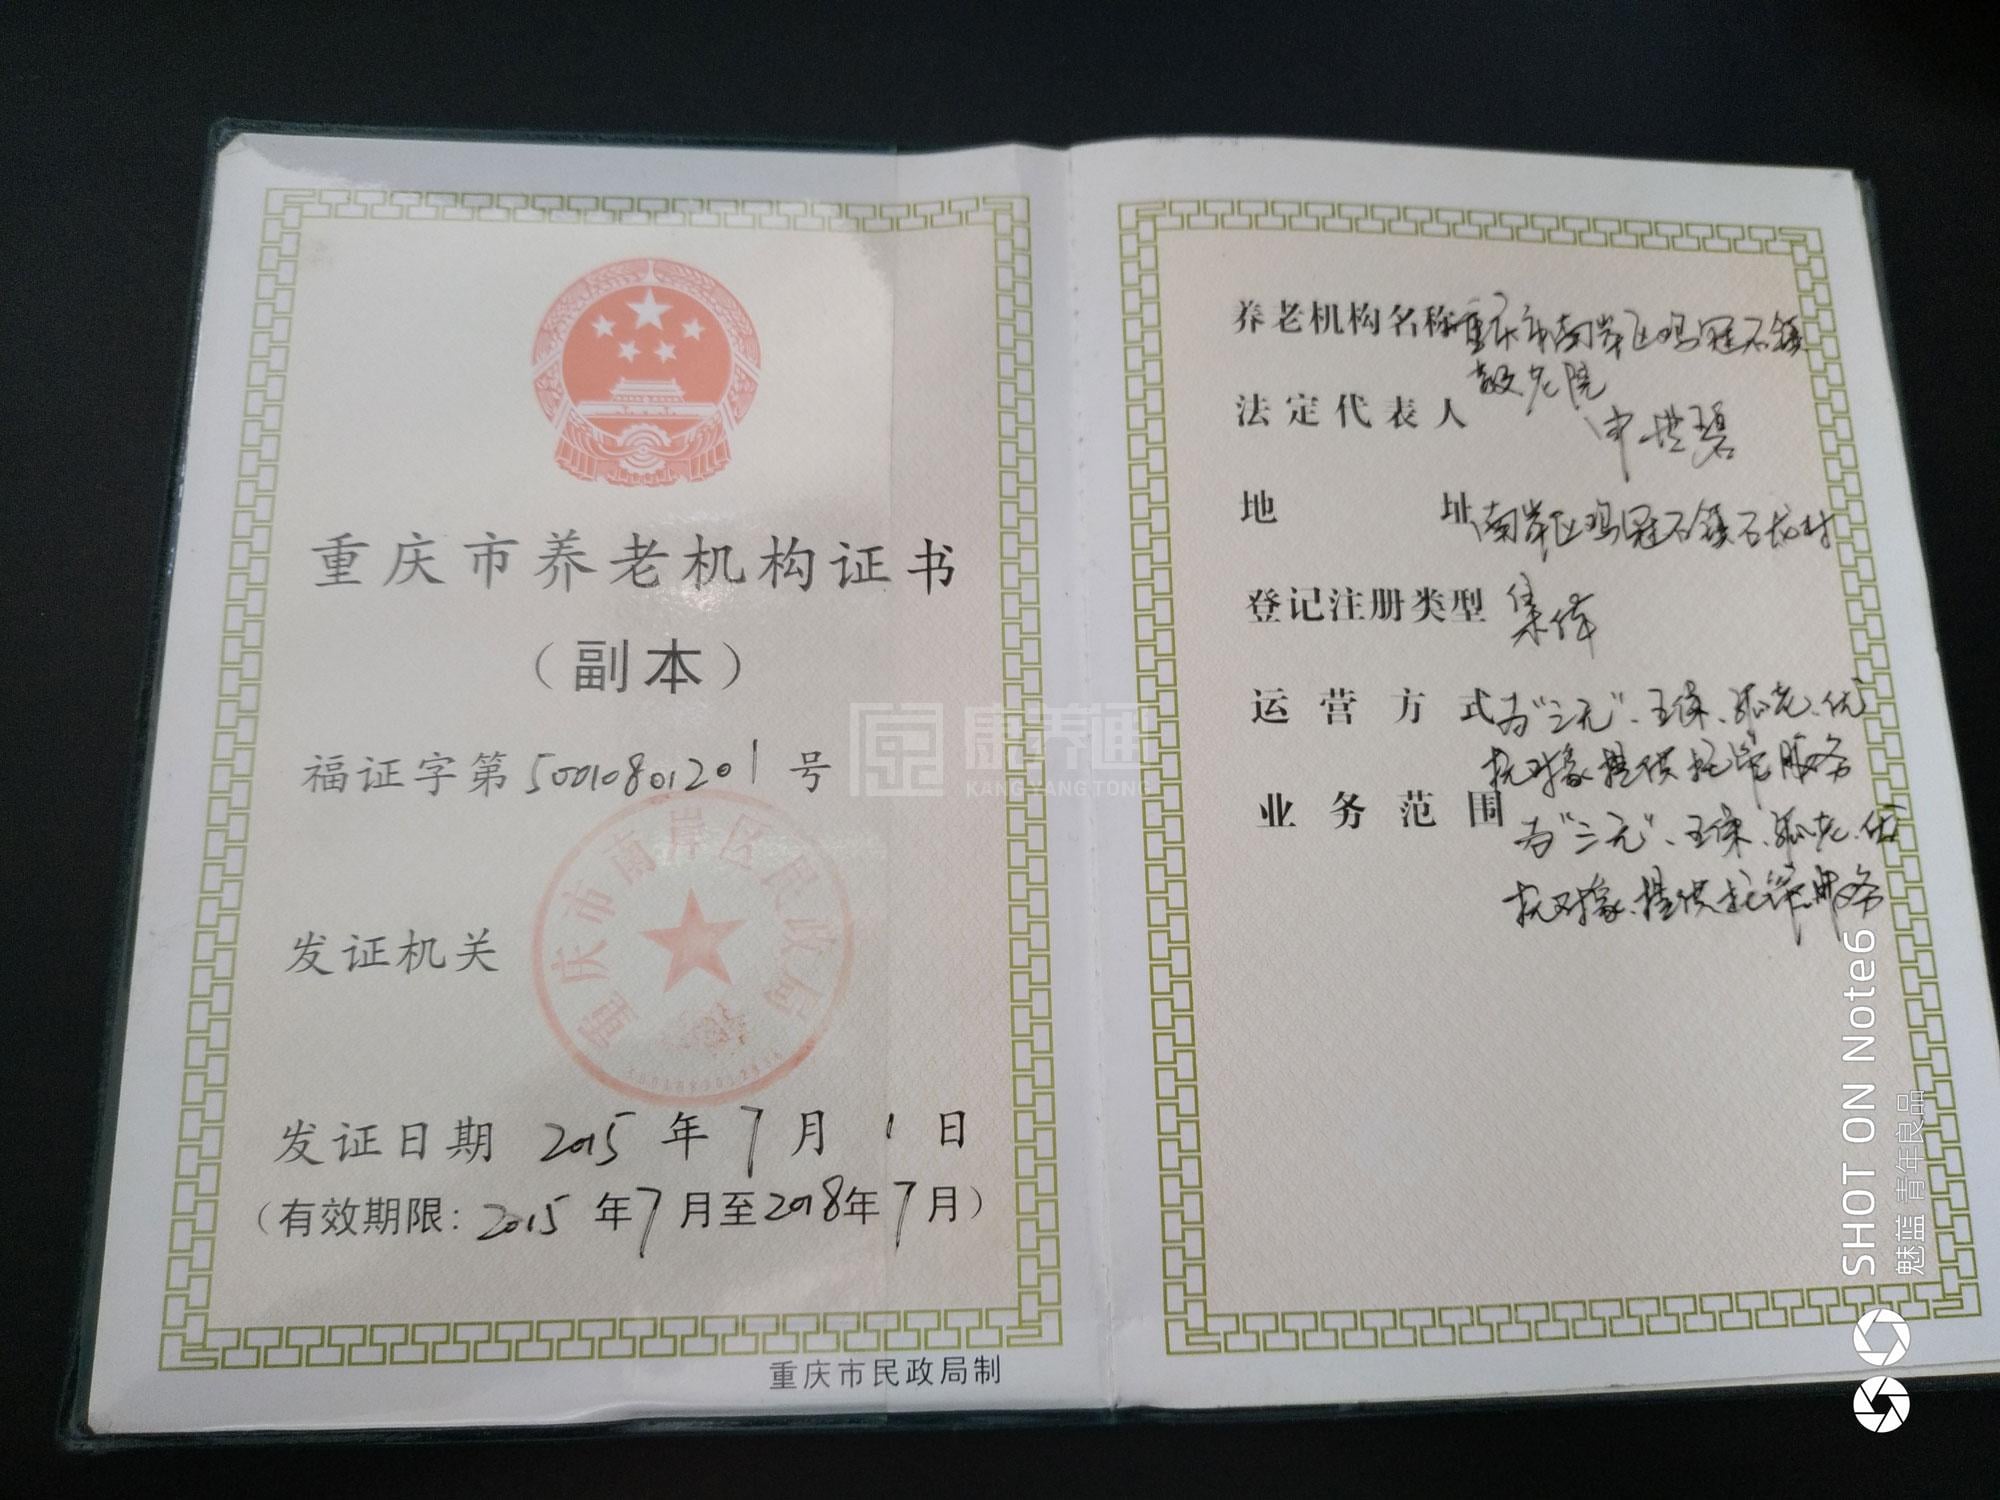 重庆市养老机构证书
（副本）
福证字第50010801201号
重庆市南岸区民政局
发证机关
发证日期 2015年7月1日
（有效期限：2015年7月至2018年7月）
重庆市民政局制
养老机构名称 重庆市南岸区鸡冠石镇
敬老院
法定代表人 申世碧
地址 南岸区鸡冠石镇石龙村
登记注册类型 集体
运营方式 为“三无”、五保、孤老、优
抚对象提供托管服务
业务范围 为“三无”、五保、孤老、优
抚对象、提供托管服务
康养通
KANG YANG TONG
SHOT ON Note6
魅蓝 青年良品